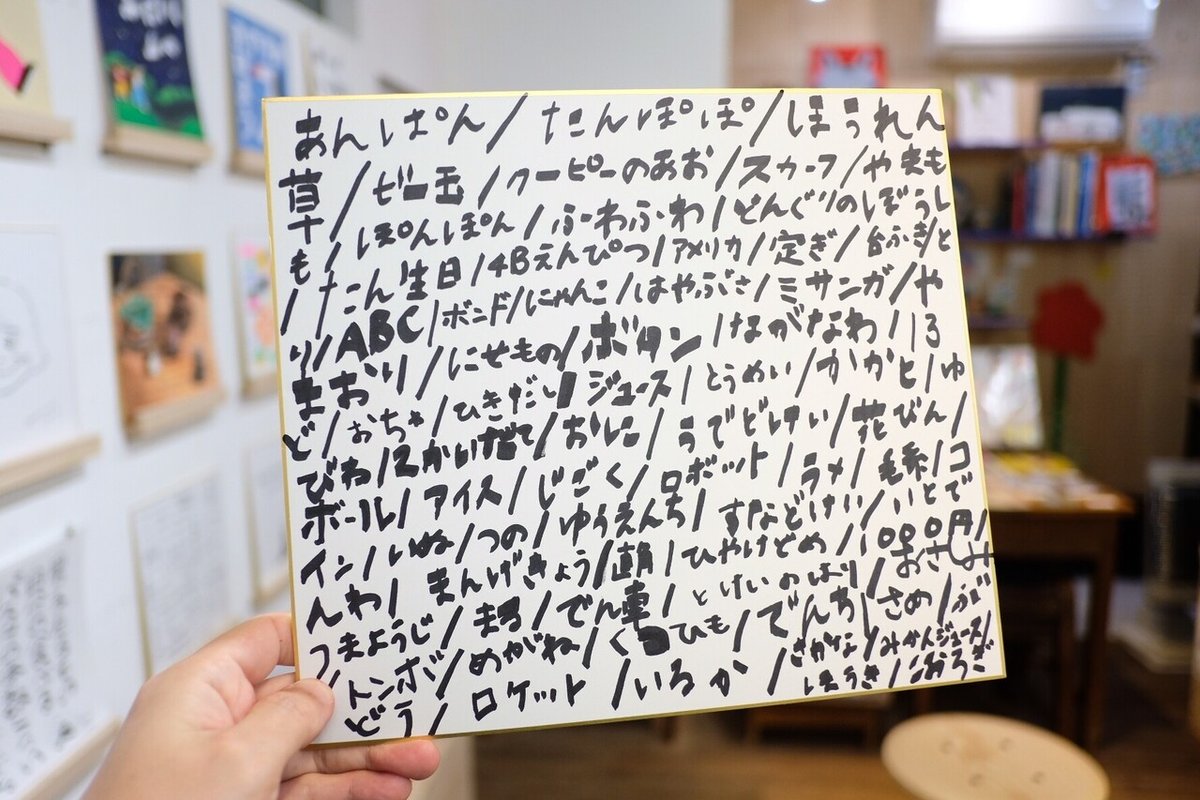 あんぱん/たんぽぽ/ほうれん
草/ビー玉/クーピーのあお/スカーフ/やまも
も/ぽんぽん/ふわふわ/どんぐりのぼうし
/たん生日/4Bえんぴつ/アメリカ/定ぎ/台ふき/と
り/ABC/ボンド/にゃんこ/はやぶさ/ミサンガ/や
まおり/にせもの/ボタン/ながなわ/
ど/おちゃ/ひきだし/ジュース/とうめい/かかと/ゆ
びわ/2かいだて/おに/うでどけい/花びん/
ボール/アイス/じごく/ロボット/ラメ/毛糸/コ
イン/いぬ/つの/ゆうえんち/すなどけい/いとで
んわ/まんげきょう/朝/ひやけどめ/1000円/
つまようじ/まち/でん車/とけいのはり/おさしみ
/トンボ/めがね/くつひも/でんち/さめ/ぶ
どう/ロケット/いるか/さかな/みかんジュース/
ほうき/こおろぎ